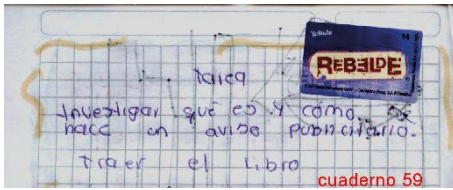 REBELDE
Tarea
Investigar que es y cómo se
hace un aviso publicitario.
Traer el libro
cuaderno 59